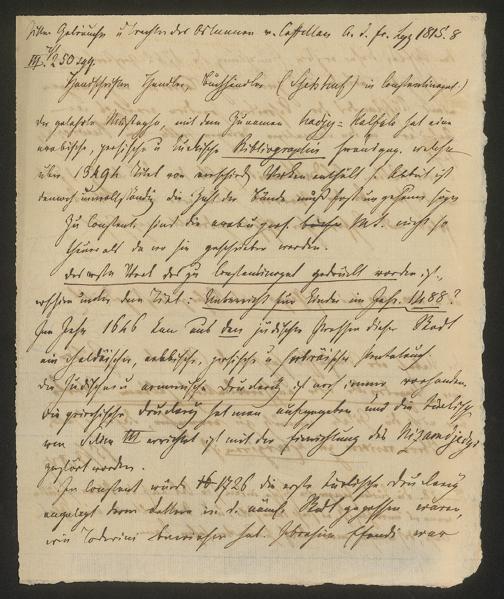 Sitten Gebräuche u Trachten der Osmanen v. Castellan A. d. fr. Lpz 1815. 8
III. 250 sqq.
Handschriften Handler, Buchhändler ( ) in Constantinopel.)
Der gelehrte Mustapha, mit dem Zunamen Hadgy=Kalfah hat eine
arabische, persische u türkische Bibliographie herausgeg. welche
über 13494 Titel von verschied. Werken enthält; Arbeit ist
dennoch unvollständig die Zahl der Bände muß
Zu Constant. sind die arab u pers. Mst. nicht so
theuer als da wo sie geschrieben werden.
Das erste Werk das zu Constantinopel gedruckt worden ist,
erschien unter dem Titel: Unterricht für Kinder im Jahr. 1488?
Im Jahr 1646 kam aus den jüdischen Pressen dieser Stadt
ein chaldäischer, arabischer, persischer u hebräischer Pentateuch.
Die Jüdische u armenische Druckerey ist noch immer vorhanden.
Die griechische Druckerey hat man aufgegeben und die Türkische
von Selim III errichtet ist mit der Einrichtung des Nizamdjedyd
zerstört worden.
In Constant wurde 1726 die erste türkische Druckerey
angelegt deren Lettern in d. näml. Stadt gegossen waren,
wie Toderini bewiesen hat. Ibrahim Effendi war